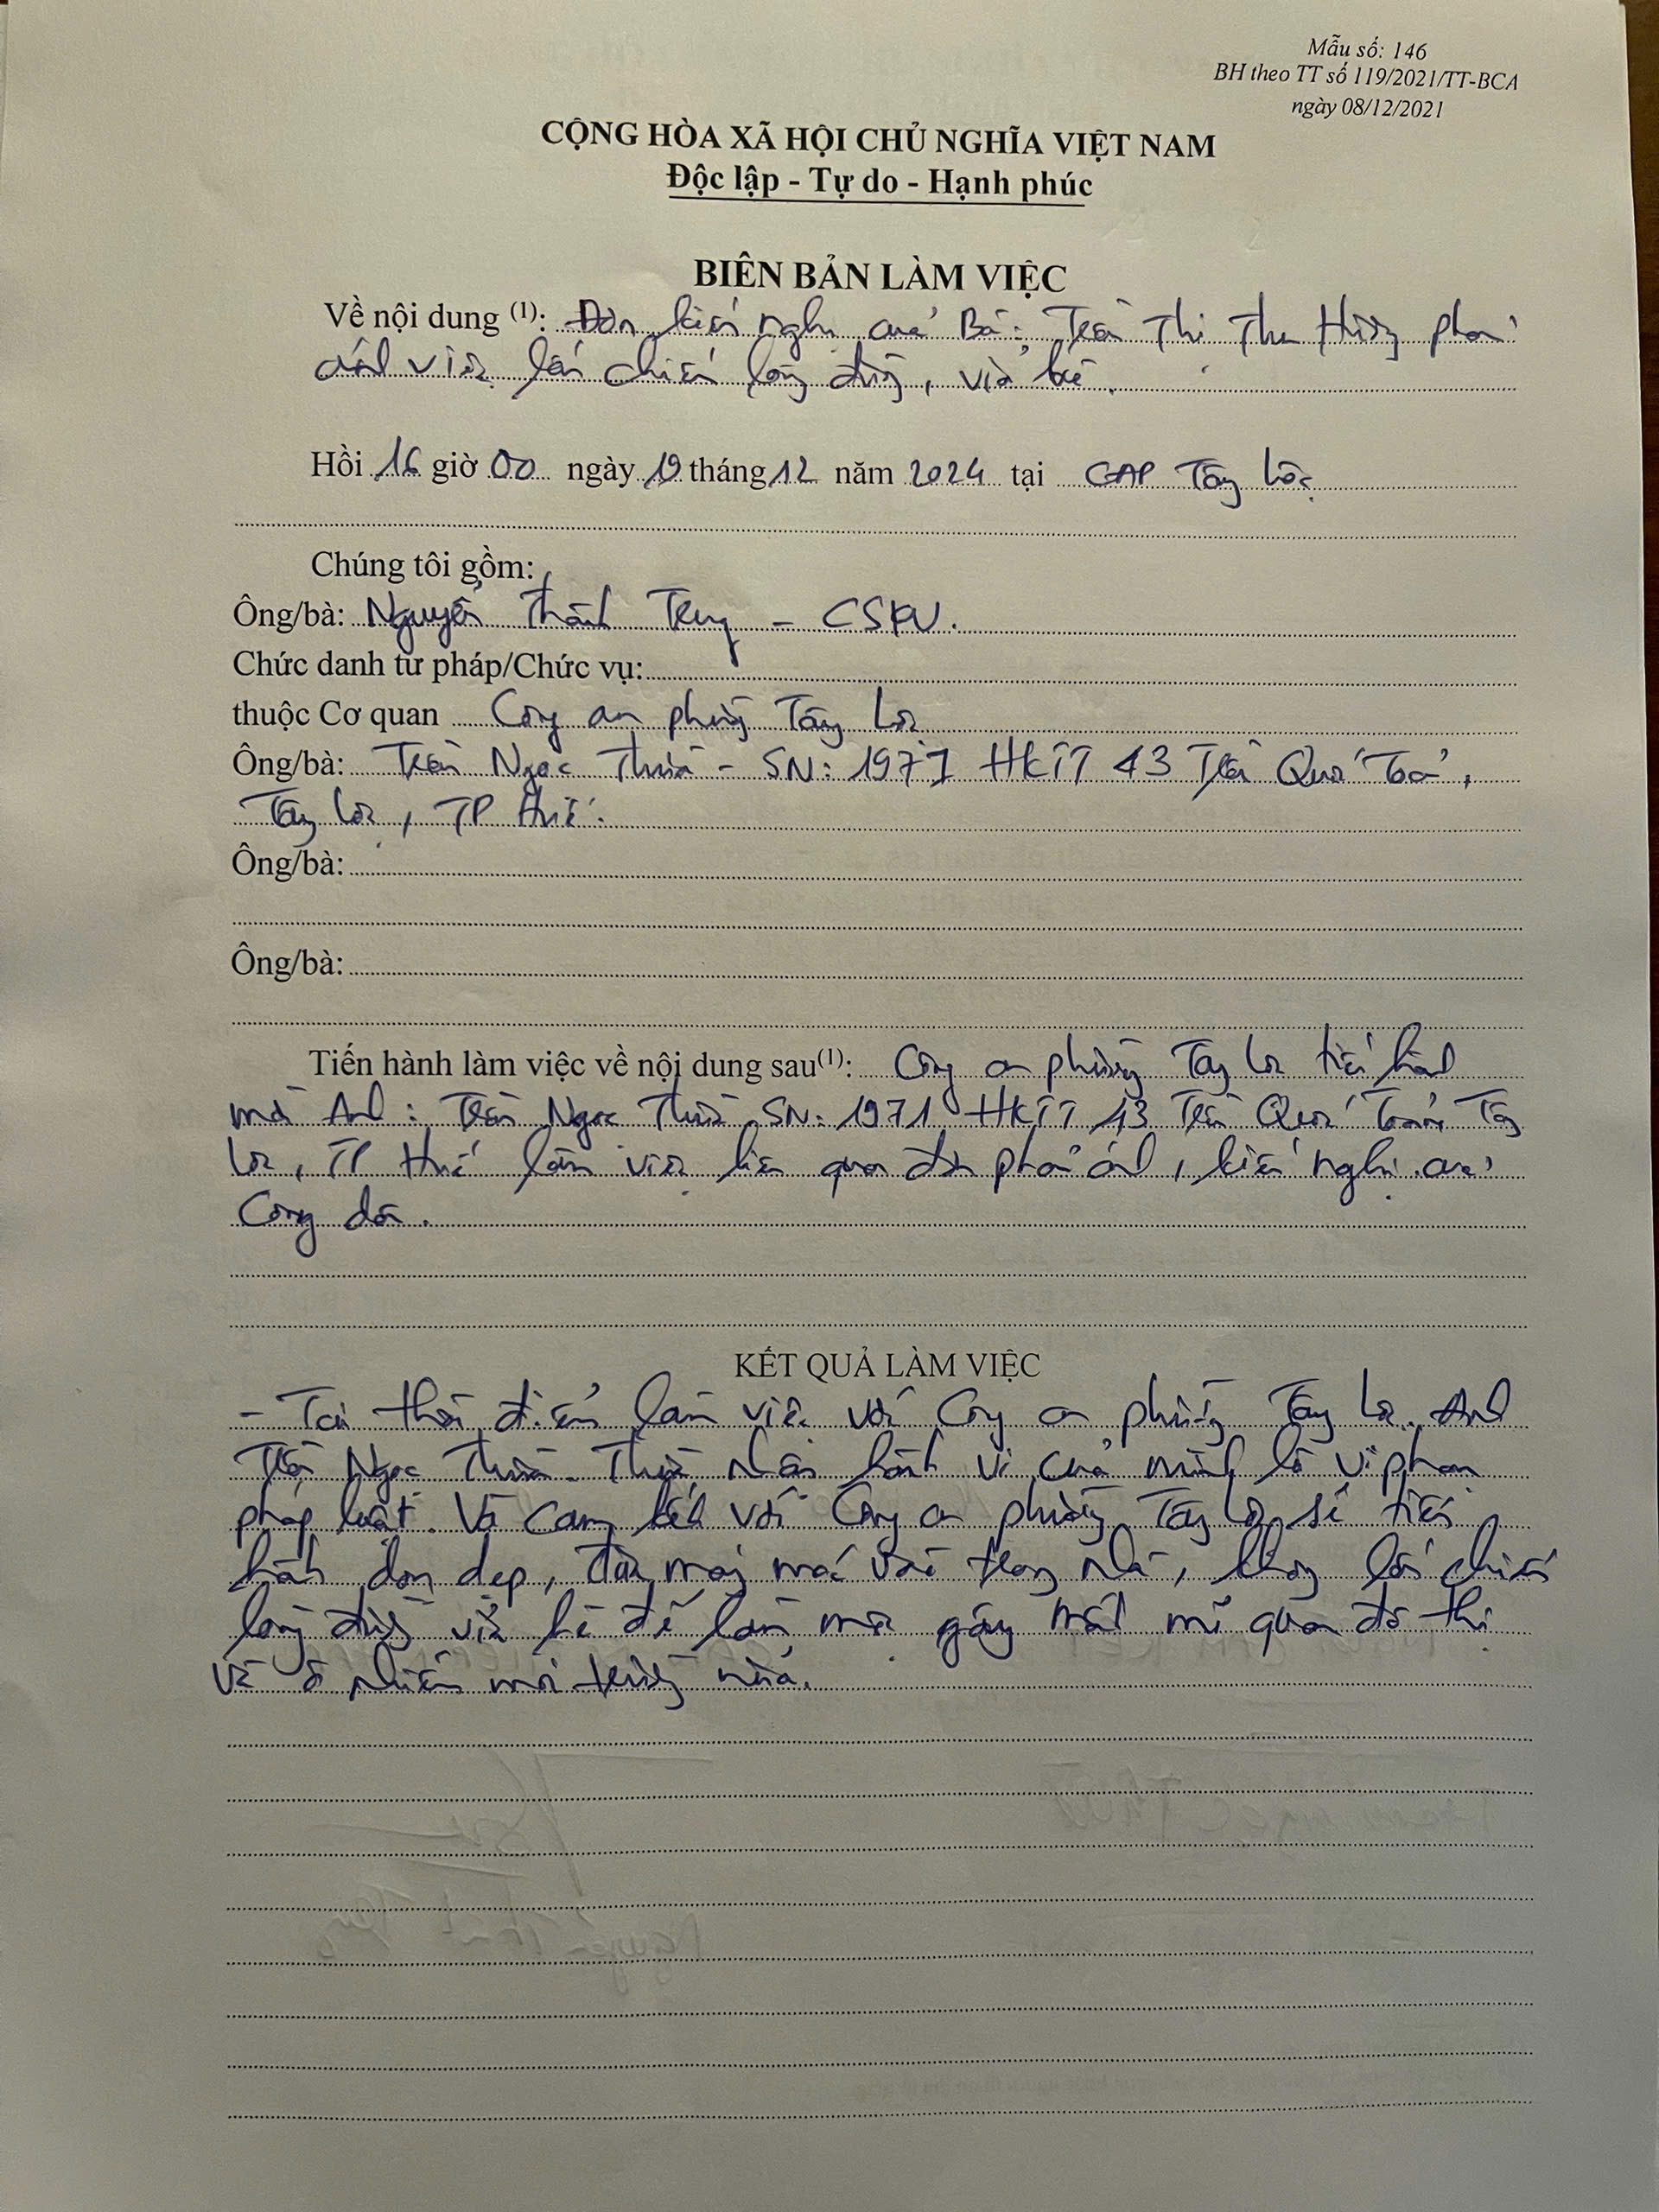 Mẫu số: 146
BH theo TT số 119/2021/TT-BCA
ngày 08/12/2021
CỘNG HÒA XÃ HỘI CHỦ NGHĨA VIỆT NAM
Độc lập - Tự do - Hạnh phúc
BIÊN BẢN LÀM VIỆC
Về nội dung (1): Đơn kiến nghị của Bà: Trần Thị Thu Hường phản
ánh việc lấn chiếm lòng đường, vỉa hè.
Hồi 16 giờ 00 ngày 19 tháng 12 năm 2024 tại CAP Tây Lộc
Chúng tôi gồm:
Ông/bà: Nguyễn Thành Trung - CSKV.
Chức danh tư pháp/Chức vụ:
thuộc Cơ quan Công an phường Tây Lộc
Ông/bà: Trần Ngọc - SN: 1971 HKTT 43 Trần Quốc Toản,
Tây Lộc, TP Huế.
Ông/bà:
Ông/bà:
Tiến hành làm việc về nội dung sau(1): Công an phường Tây Lộc tiến hành
mời Anh: Trần Ngọc SN: 1971 HKTT 43 Trần Quốc Toản Tây
Lộc, TP Huế làm việc liên quan đơn phản ánh, kiến nghị của
Công dân.
KẾT QUẢ LÀM VIỆC
- Tại thời điểm làm việc với Công an phường Tây Lộc. Anh
Trần Ngọc Thừa nhận hành vi của mình là vi phạm
pháp luật. Và cam kết với Công an phường Tây Lộc sẽ tiến
hành dọn dẹp, máy móc vào trong nhà, không lấn chiếm
lòng đường vỉa hè để làm gây mất mĩ quan đô thị
và ô nhiễm môi trường nữa.